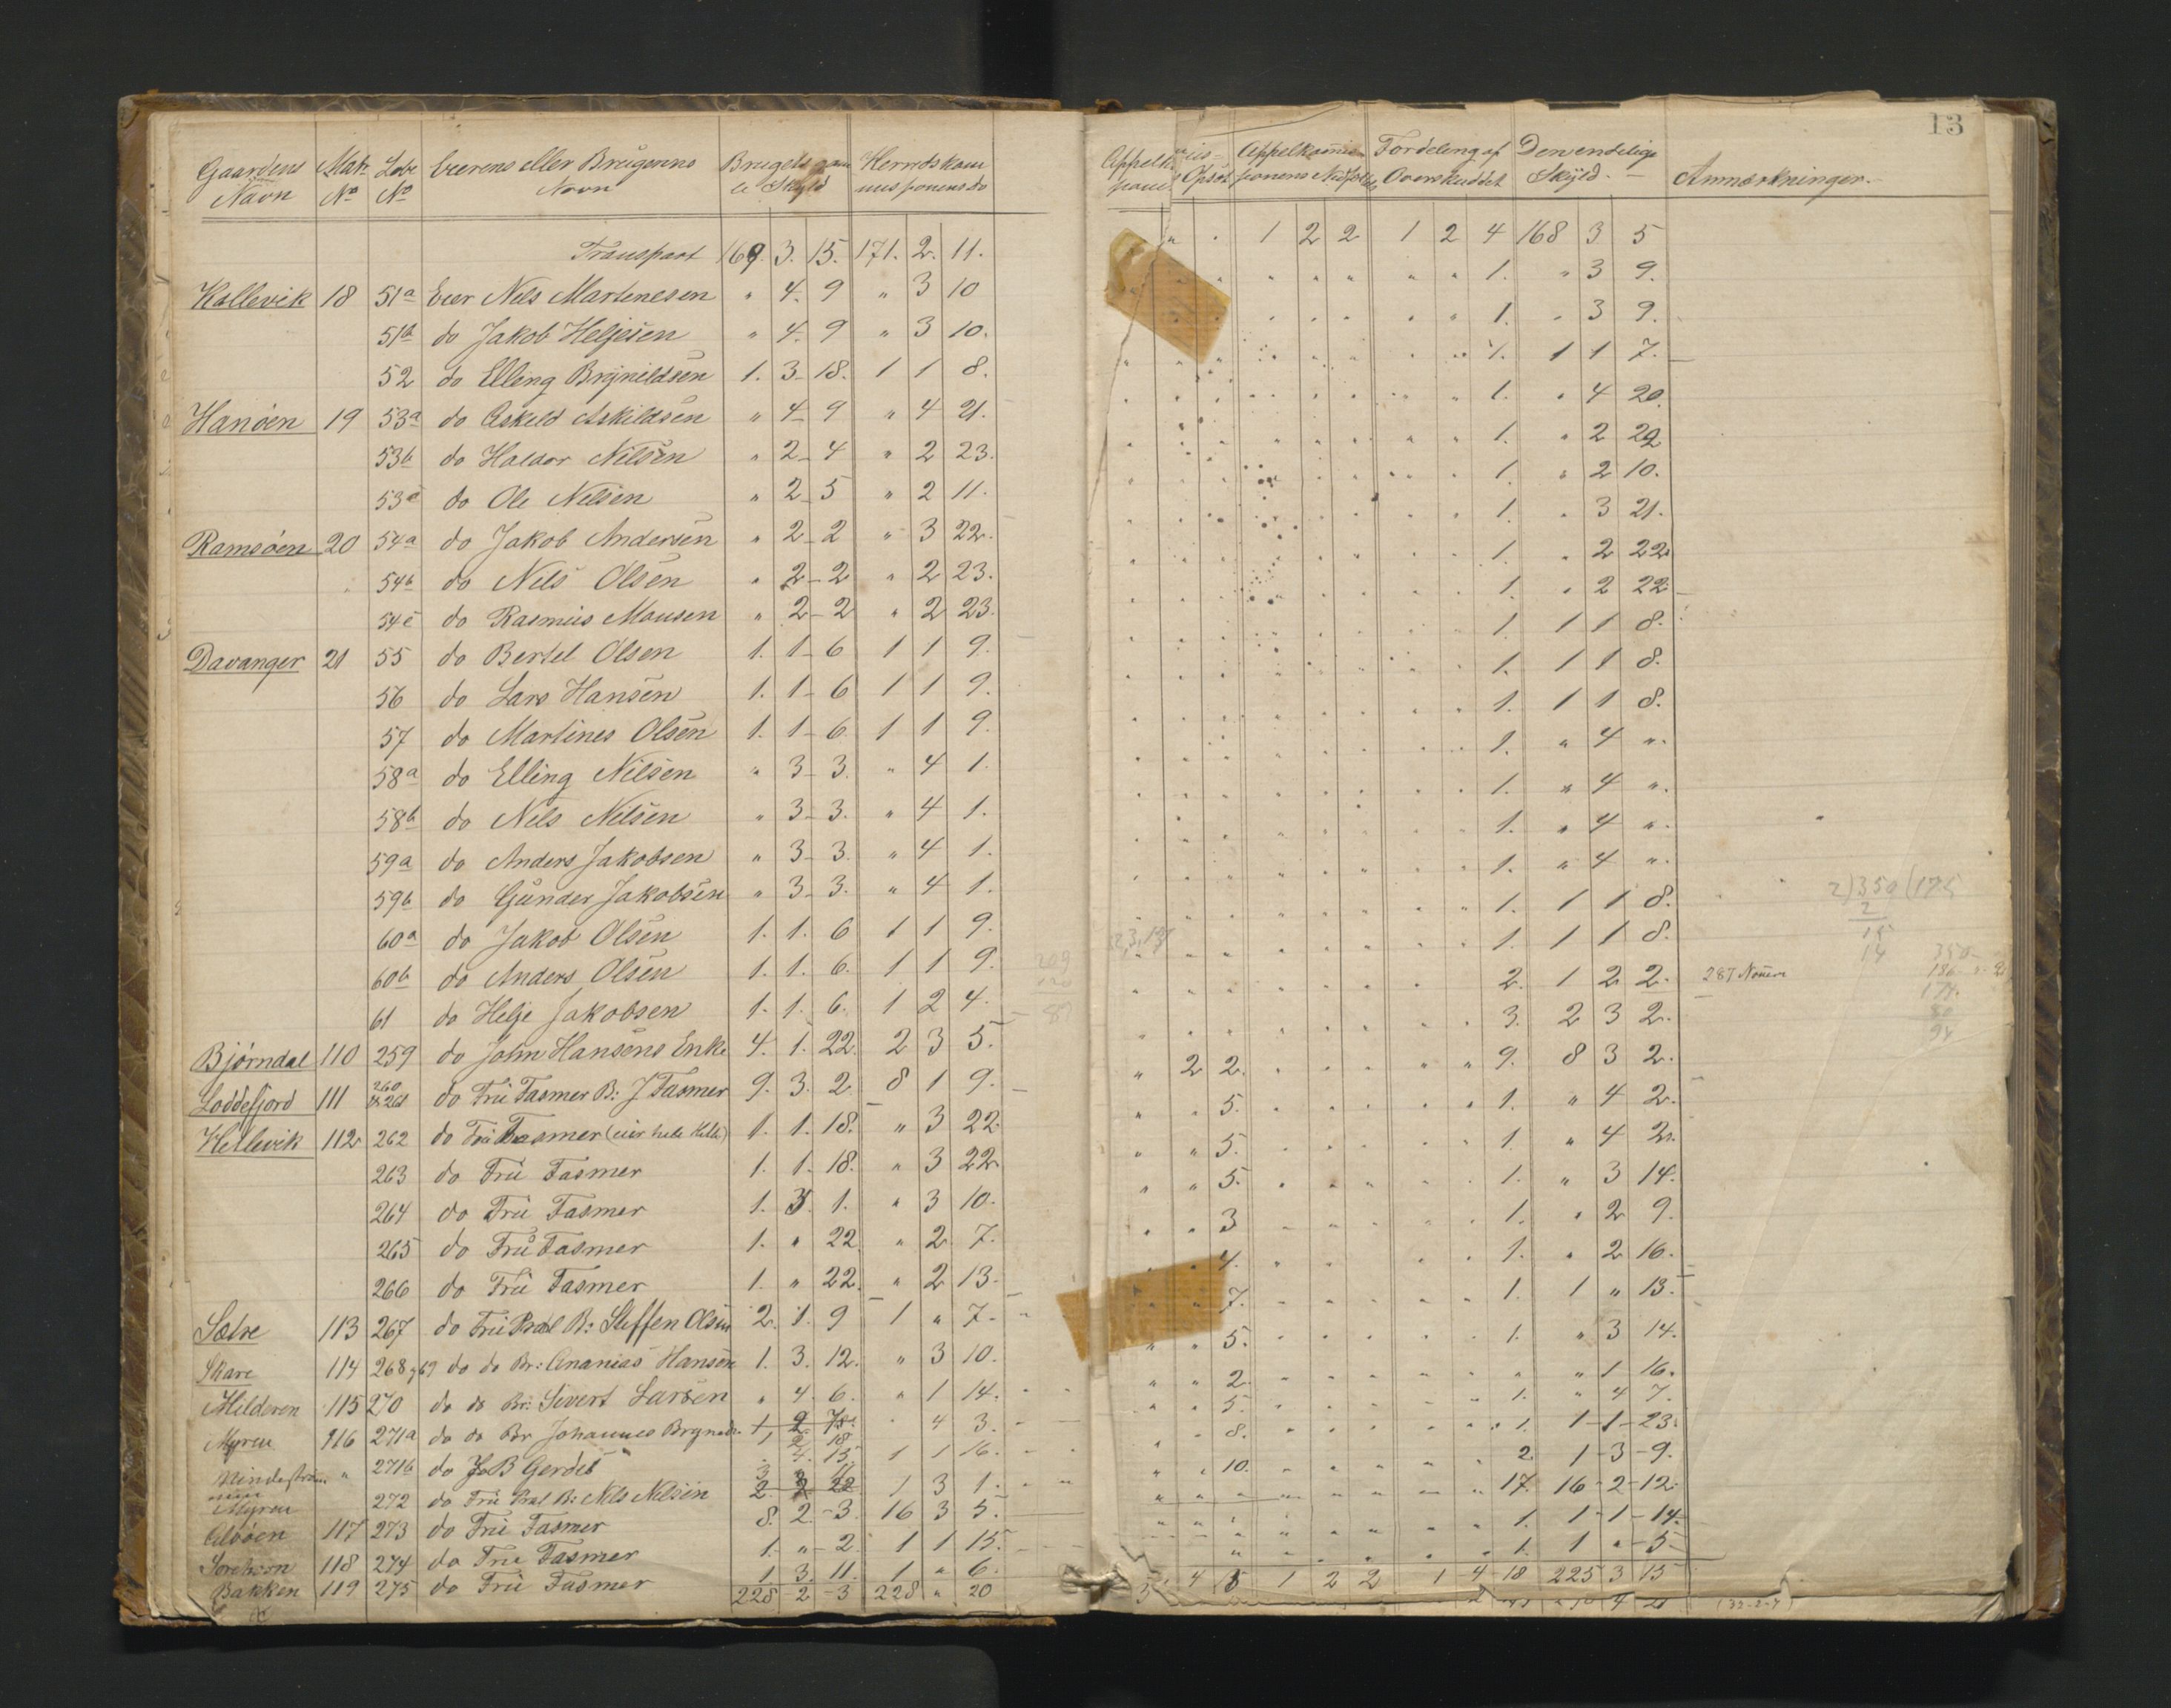 Gaardens Navn | Matr. No | Løbe No | Eierens eller Brugerens Navn | Brugets gamle Skyld | Herredskommissionens do
Transport 169. 3. 15. 171. 2. 11.
Kallevik 18 51a Eier Nils Martenesen " 4. 9 " 3 10
51b do Jakob Heljesen " 4. 9 " 3 10.
52 do Elling Brynildsen 1. 3 - 18. 1 1 8.
Hanøen 19 53a do Askeld Askildsen " 4 - 9 " 4 21.
53b do Haldor Nilsen " 2 - 4 " 2 23.
53c do Ole Nilsen " 2 - 5 " 2 11.
Ramsøen 20 54a do Jakob Andersen " 2 - 2 " 3 22.
54b do Nils Olsen " 2 - 2 " 2 23.
54c do Rasmus Monsen " 2 - 2 " 2 23.
Davanger 21 55 do Bertel Olsen 1. 1 - 6 1 1 9.
56 do Lars Hansen 1. 1 - 6 1 1 9.
57 do Martines Olsen 1. 1 - 6 1 1 9.
58a do Elling Nilsen " 3 - 3. " 4 1.
58b do Nils Nilsen " 3 - 3. " 4 1.
59a do Anders Jakobsen " 3 - 3. " 4 1.
59b do Gunder Jakobsen " 3 - 3. " 4 1.
60a do Jakob Olsen 1. 1. 6 1 1 9.
60b do Anders Olsen 1. 1. 6. 1 1 9.
61 do Helje Jakobsen 1. 1. 6. 1 2 4.
Bjørndal 110 259 do John Hansens Enke 4. 1. 22. 2 3 5.
Loddefjord 111 260 & 261 do Frü Fasmer B: J Fasmer 9. 3. 2 8 1 9.
Hellevik 112 262 do Frü Fasmer (eier hele) 1. 1. 18. " 3 22
263 do Frü Fasmer 1. 1. 18. " 3 22.
264 do Frü Fasmer 1. 3. 1. " 3 10.
265 do Frü Fasmer 1. " 22 " 2 7.
266 do Frü Fasmer 1. " 22. " 2 13.
Sætre 113 267 do Frü B: Steffen Olsen 2. 1. 9 1 " 7.
Skare 114 268 , 69 do do Br: Ananias Hansen 1. 3. 12. " 3 10.
Hilderen 115 270 do do Br: Sivert Larsen " 4. 6. " 1 14.
Myren 116 271a do do Br Johannes 1 2 18 " 4 3.
" 271b do J B Gerdes " 4. 15. 1 1 16.
Myren 272 do Frü B: Nils Nilsen 2. 2 22 1 3 1.
Alvøen 117 273 do Frü Fasmer 8. 2 - 3. 16 3 5.
118 274 do Frü Fasmer 1. " - 2. 1 1 15.
Bakken 119 275 do Frü Fasmer 1. 3. 11. 1 " 6.
228 2 - 3 228 " 20
13
Appelkommissionens Nedsættelse | Fordeling af Overskuddet | Den endelige Skyld. | Anmærkninger.
" . 1 2 2 1 2 4 168 3 5
1. " 3 9.
1. " 3 9.
1. 1 1 7.
1. " 4 20.
1. " 2 22
1. " 2 10.
1. " 3 21.
1. " 2 22
1. " 2 22
1. 1 1 8.
1. 1 1 8.
1. 1 1 8.
1. " 4 ".
1. " 4 ".
1. " 4 ".
1. " 4 ".
1. 1 1 8.
1. 1 1 8.
2. 1 2 2. 287 Numre
3. 2 3 2.
" 2 2. 9. 8 3 2.
" " 5. 1. " 4 2.
" " 5. 1 " 4 2.
" " 5. 1. " 3 14.
" " 3 1. " 2 9.
" " 4. 1. " 2 16.
" " 7. 1. 1 " 13.
" " 5. 1. " 3 14.
" " 2. " " 1 16.
" " 5. 1. " 4 7.
" " 8. 1. 1 - 1 - 23.
" " 10. 2 1 - 3 - 9.
17. 16 - 2 - 12.
1. 1 - 1 - 14.
1. 1 " - 5.
4 5 1 2 2 1 4 18 225 3 15
2)350(175